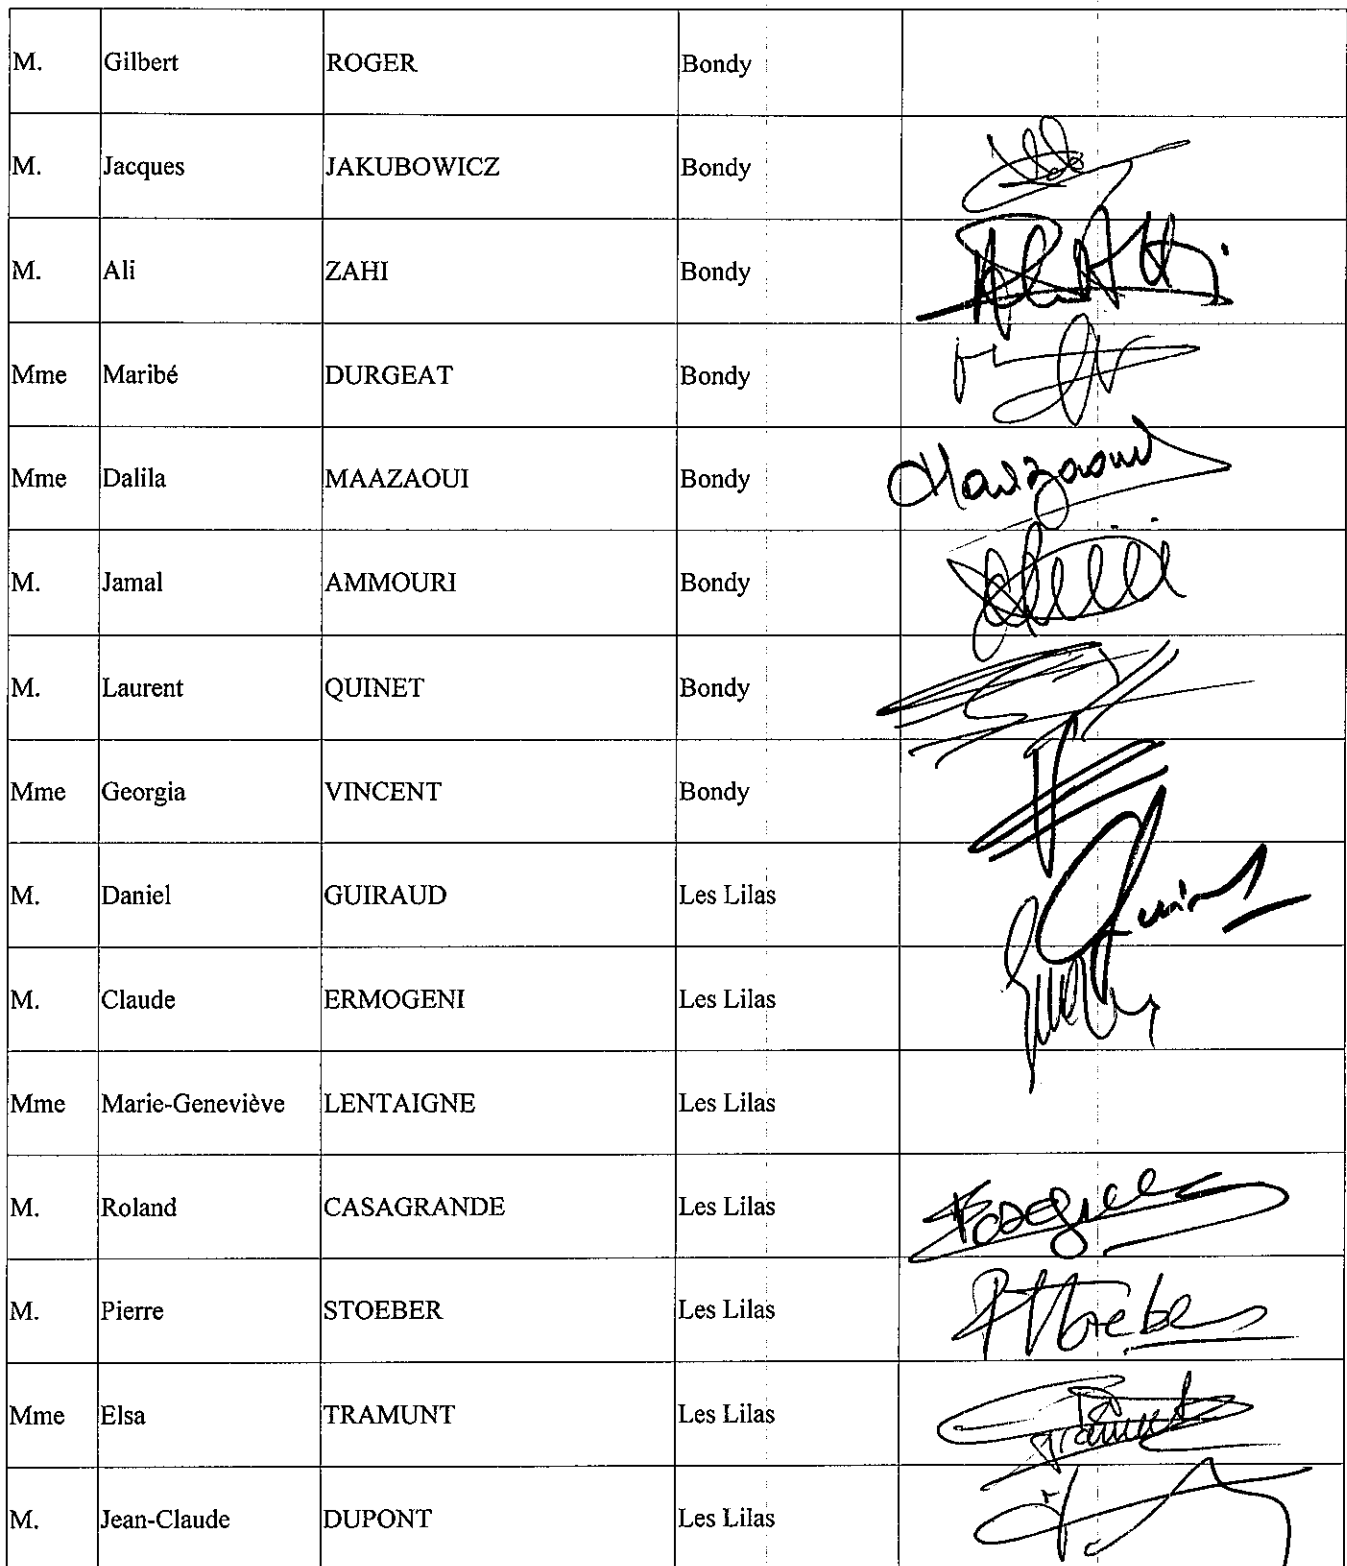 M. Gilbert ROGER Bondy
M. Jacques JAKUBOWICZ Bondy
M. Ali ZAHI Bondy
Mme Maribé DURGEAT Bondy
Mme Dalila MAAZAOUI Bondy
M. Jamal AMMOURI Bondy
M. Laurent QUINET Bondy
Mme Georgia VINCENT Bondy
M. Daniel GUIRAUD Les Lilas
M. Claude ERMOGENI Les Lilas
Mme Marie-Geneviève LENTAIGNE Les Lilas
M. Roland CASAGRANDE Les Lilas
M. Pierre STOEBER Les Lilas
Mme Elsa TRAMUNT Les Lilas
M. Jean-Claude DUPONT Les Lilas